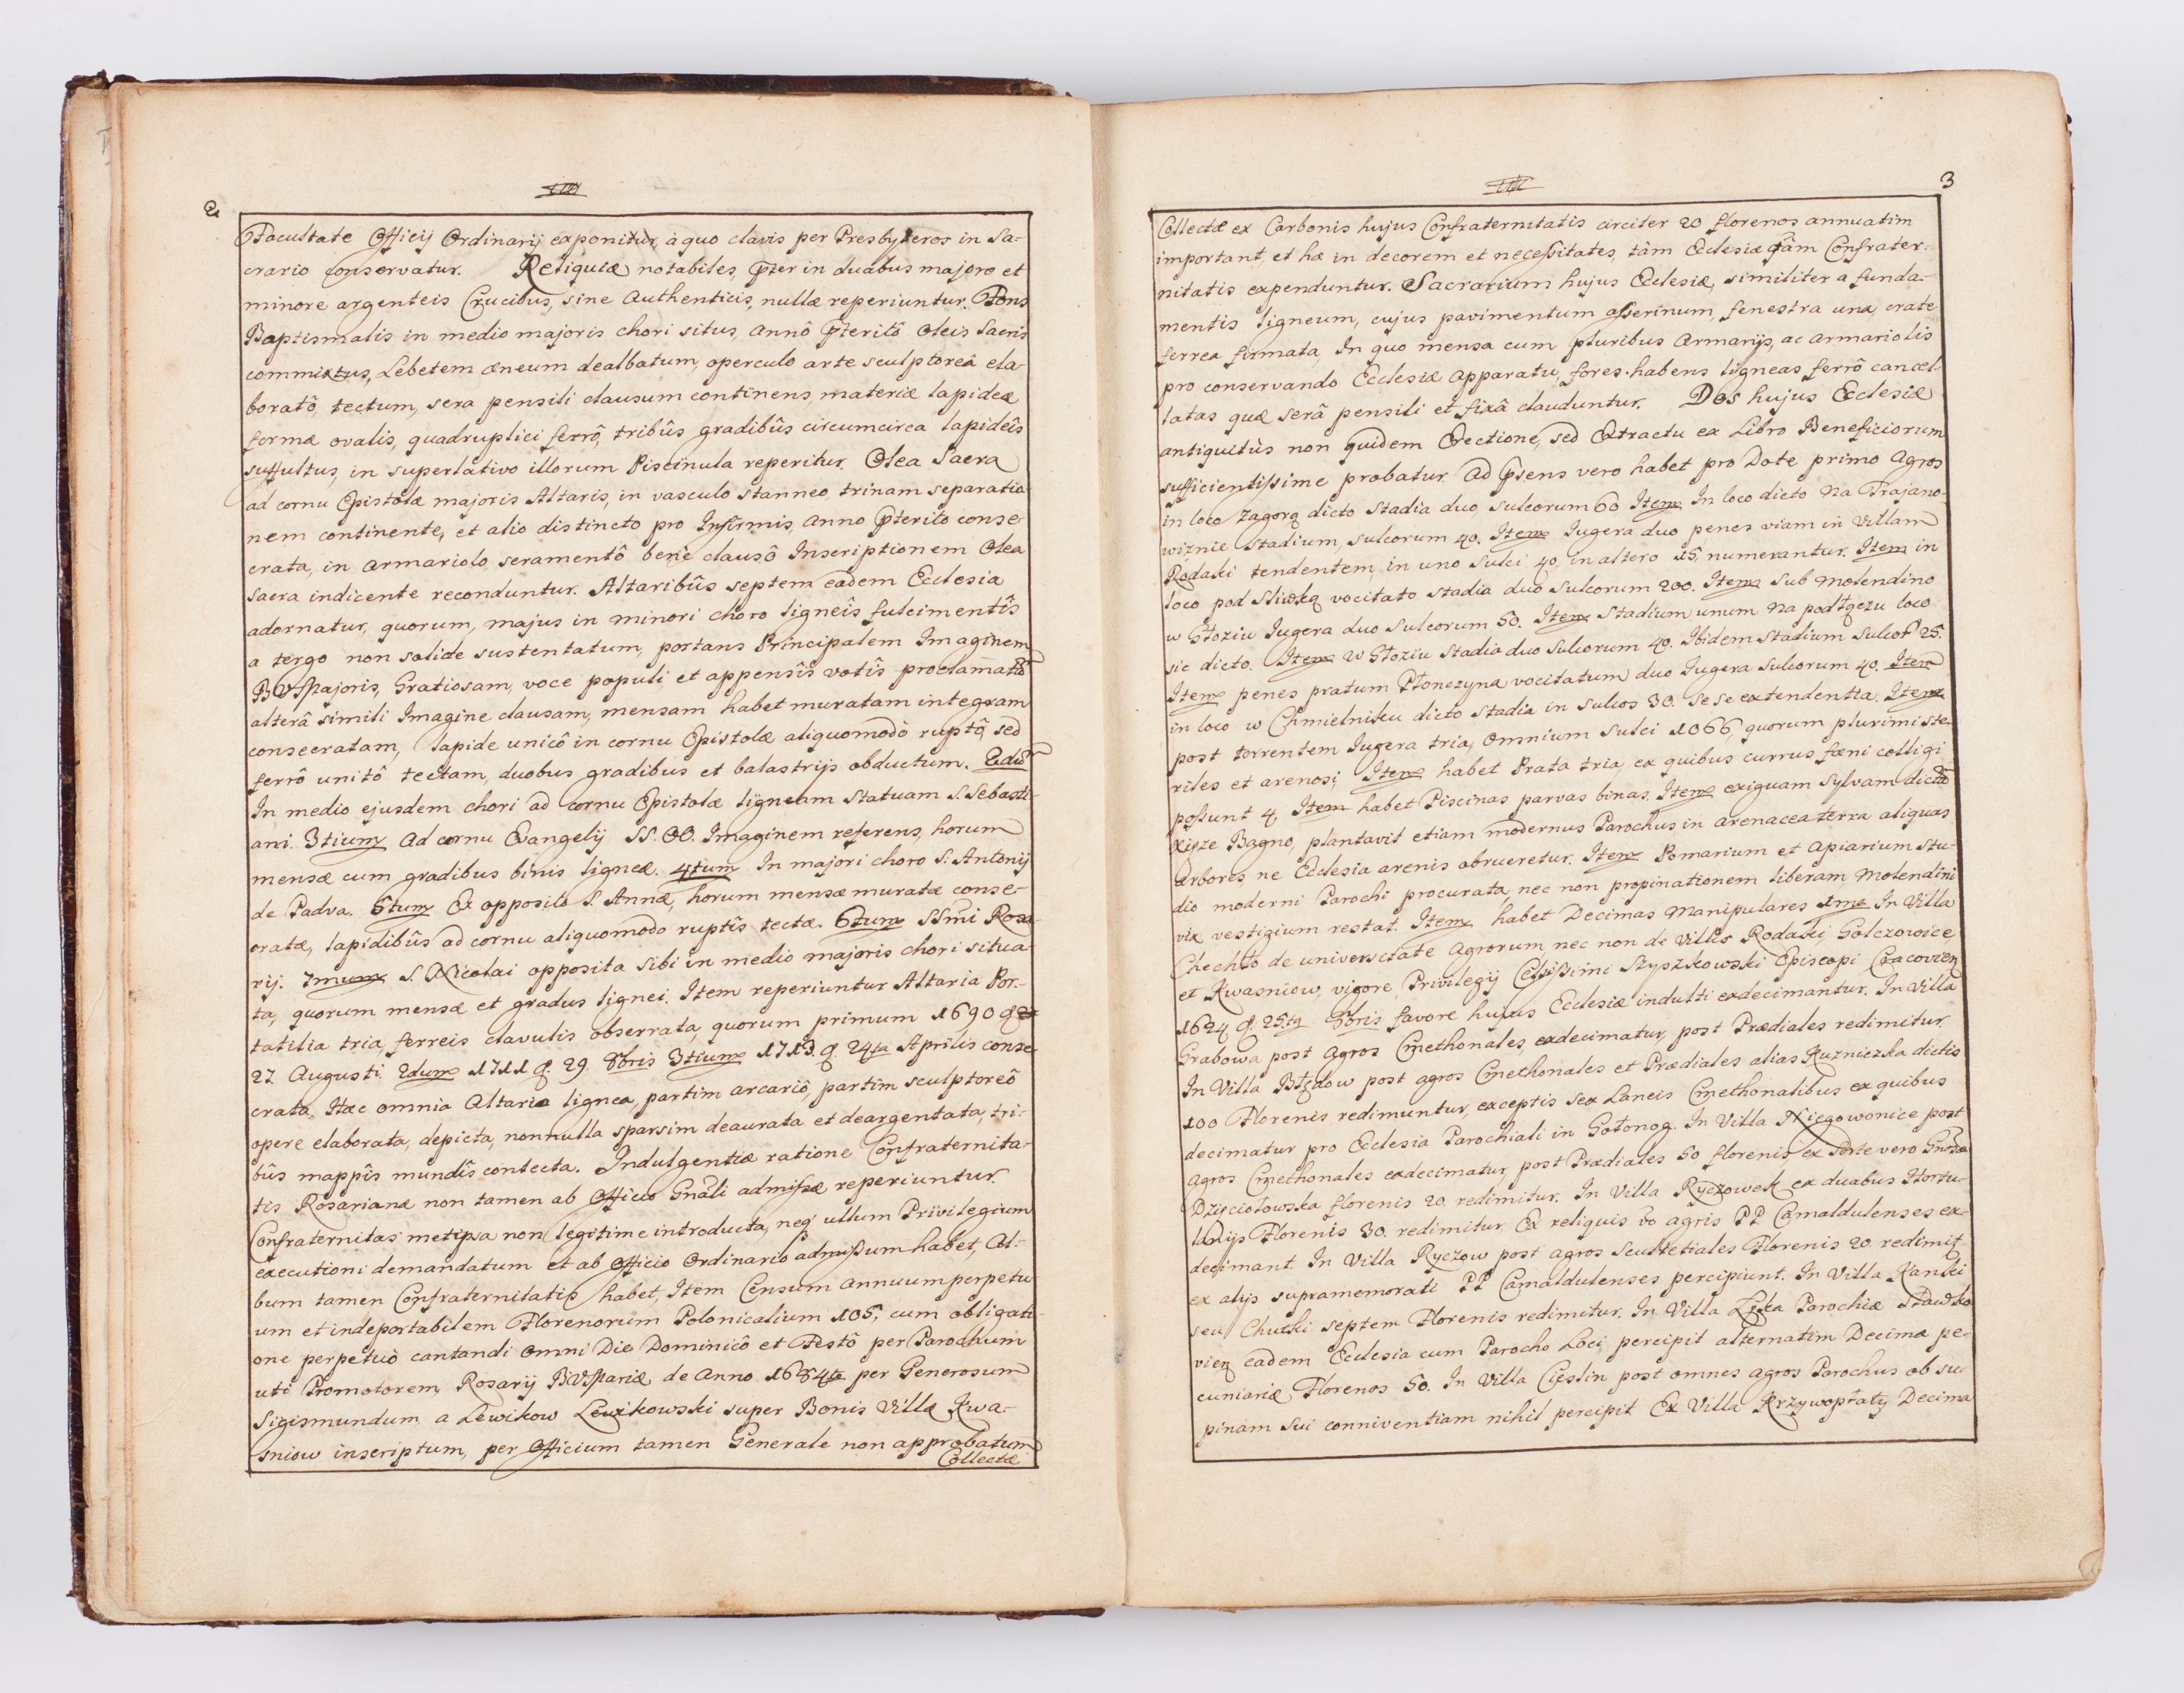 2
Facultate Officij Ordinarij exponitur, à quo clavis per Presbyteros in Sa-
crario conservatur. Reliquiæ notabiles, pter in duabus majore et
minore argenteis Crucibus, sine Authenticis, nullæ reperiuntur. Fons
Baptismalis in medio majoris chori situs, Annô pteritô Oleis Sacris
commixtus, Lebetem æneum dealbatum, operculo arte sculptoreâ ela-
boratô, tectum, sera pensili clausum continens, materiæ lapideæ
formæ ovalis, quadruplici ferrô, tribûs gradibûs circumcirca lapideîs
suffultus, in superlativo illorum Piscinula reperitur. Olea Sacra
ad cornu Epistolæ majoris Altaris, in vasculo stanneo trinam separatio-
nem continente, et alio distincto pro Infirmis, Anno pterito conse-
crata, in armariolo, seramentô benè clausô Inscriptionem Olea
Sacra indicente reconduntur. Altaribûs septem eadem Ecclesia
adornatur, quorum, majus in minori choro ligneîs fulcimentîs
a tergo non solide sustentatum, portans Principalem Imaginem
BVMajoris, Gratiosam, voce populi et appensîs votîs proclamatã
alterâ simili Imagine clausam, mensam habet muratam integram
consecratam, lapide unicô in cornu Epistolæ aliquomodò ruptô, sed
ferrô unitô tectam, duobus gradibus et balastrijs obductum. 2dũ
In medio ejusdem chori ad cornu Epistolæ ligneam Statuam S. Sebasti-
ani. 3tium Ad cornu Evangelij SS. OO. Imaginem referens, horum
mensæ cum gradibus binis ligneæ. 4tum In majori choro S. Antonij
de Padva. 5tum Ex opposito S. Annæ, horum mensæ muratæ conse-
cratæ, lapidibûs ad cornu aliquomodo ruptîs tectæ. 6tum SSmi Rosa-
rij. 7mum S. Nicolai opposita sibi in medio majoris chori situa-
ta, quorum mensæ et gradus lignei. Item reperiuntur Altaria Por-
tatilia tria, ferreis clavulis obserrata, quorum primum 1690 d.
27 Augusti. 2dum 1711 d. 29. 8bris 3tium 1713. d. 24ta Aprilis conse-
crata. Hæc omnia Altaria lignea, partim arcariô, partim sculptoreô
opere elaborata, depicta, nonnulla sparsim deaurata et deargentata, tri-
bûs mappîs mundîs contecta. Indulgentiæ ratione Confraternita-
tis Rosarianæ non tamen ab Officio Gnali admissæ reperiuntur.
Confraternitas metipsa non legitime introducta, neq ullum Privilegium
executioni demandatum et ab Officio Ordinario admissum habet, Al-
bum tamen Confraternitatis habet, Item Censum annuum perpetu-
um et indeportabilem Florenorum Polonicalium 105, cum obligati-
one perpetuò cantandi omni Die Dominicô et Festô per Parochum
uti Promotorem, Rosarij BVMariæ de Anno 1654ta per Generosum
Sigismundum a Lewikow Lewikowski super Bonis Villæ Kwa-
sniow inscriptum, per Officium tamen Generale non approbatum
Collectæ
3
Collectæ ex Carbonis hujus Confraternitatis circiter 20 florenos annuatim
important, et hæ in decorem et necessitates, tàm Ecclesiæ qàm Confrater-
nitatis expenduntur. Sacrarium hujus Ecclesiæ, similiter a funda-
mentis ligneum, cujus pavimentum asserinum, fenestra una, crate
ferrea firmata, In quo mensa cum pluribus Armarijs, ac armariolis
pro conservando Ecclesiæ apparatu, fores habens ligneas ferrô cancel-
latas quæ serâ pensili et fixâ clauduntur. Dos hujus Ecclesiæ
antiquitùs non quidem Erectione, sed Extractu ex Libro Beneficiorum
sufficientissime probatur. Ad psens vero habet pro Dote primo Agros
in loco Zagorą dicto Stadia duo, sulcorum 60 Item In loco dicto Na Trajano-
wiznie Stadium, sulcorum 40. Item Iugera duo penes viam in Villam
Rodaki tendentem, in uno Sulci 40, in altero 15, numerantur. Item in
loco pod Sliwką vocitato stadia duo Sulcorum 200. Item Sub Molendino
w Głoziu Iugera duo Sulcorum 50. Item Stadium unum Na podłęzu loco
sic dicto. Item w Głoziu Stadia duo Sulcorum 40. Ibidem Stadium Sulcor 25.
Item penes pratum Płonczyna vocitatum duo Iugera Sulcorum 40. Item
in loco w Chmielniku dicto Stadia in Sulcos 30. Sese extendentia. Item
post torrentem Iugera tria, Omnium Sulci 1066, quorum plurimi ste-
riles et arenosi; Item habet Prata tria, ex quibus currus fæni colligi
possunt 4 Item habet Piscinas parvas binas, Item exiguam Sylvam dictã
Xięze Bagno, plantavit etiam modernus Parochus in arenacea terra aliquas
Arbores, ne Ecclesia arenis obrueretur. Item Pomarium et Apiarium Stu-
dio moderni Parochi procurata, nec non propinationem liberam, Molendini
vix vestigium restat. Item habet Decimas Manipulares 1mo In Villa
Chechło de universitate Agrorum, nec non de Villis Rodaki Golczowice,
et Kwasniow, vigore Privilegij Celsissimi Szyszkowski Episcopi Cracovien
1624 d. 25ta 8bris favore hujus Ecclesiæ indulti exdecimantur. In Villa
Grabowa post Agros Cmethonales, exdecimatur, post Prædiales redimitur.
In Villa Błędow post agros Cmethonales et Prædiales alias Kuzniczka dictis
100 Florenis redimuntur, exceptis Sex Laneis Cmethonalibus ex quibus
decimatur pro Ecclesia Parochiali in Gołonog. In Villa Niegowonice post
Agros Cmethonales exdecimatur, post Prædiales 50 florenis, ex Parte vero Gnosa
Dzięciołowska florenis 20 redimitur. In Villa Ryczowek ex duabus Hortu-
lanijs Florenis 30. redimitur, Ex reliquis vo agris PP Camaldulenses ex-
decimant. In Villa Ryczow post agros Scultetiales Florenis 20 redimit
ex alijs supramemorati PP Camaldulenses percipiunt. In Villa Kanki
seu Chutki septem Florenis redimitur. In Villa Łęka Parochiæ Sławko-
vien eadem Ecclesia cum Parocho Loci percipit alternatim Decimæ pe-
cuniariæ Florenos 50. In Villa Cieslin post omnes agros Parochus ob su-
pinam sui conniventiam nihil percipit Ex Villa Krzywopłoty Decima